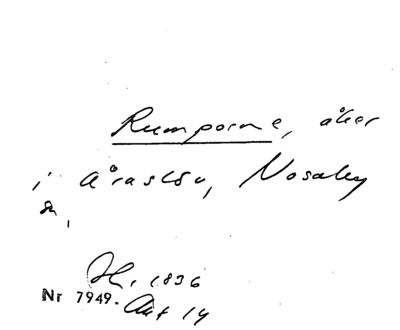 Rumporne, åker
i Araslöv, Nosaby
sn,
H. 1836
Nr 7949. Akt 14